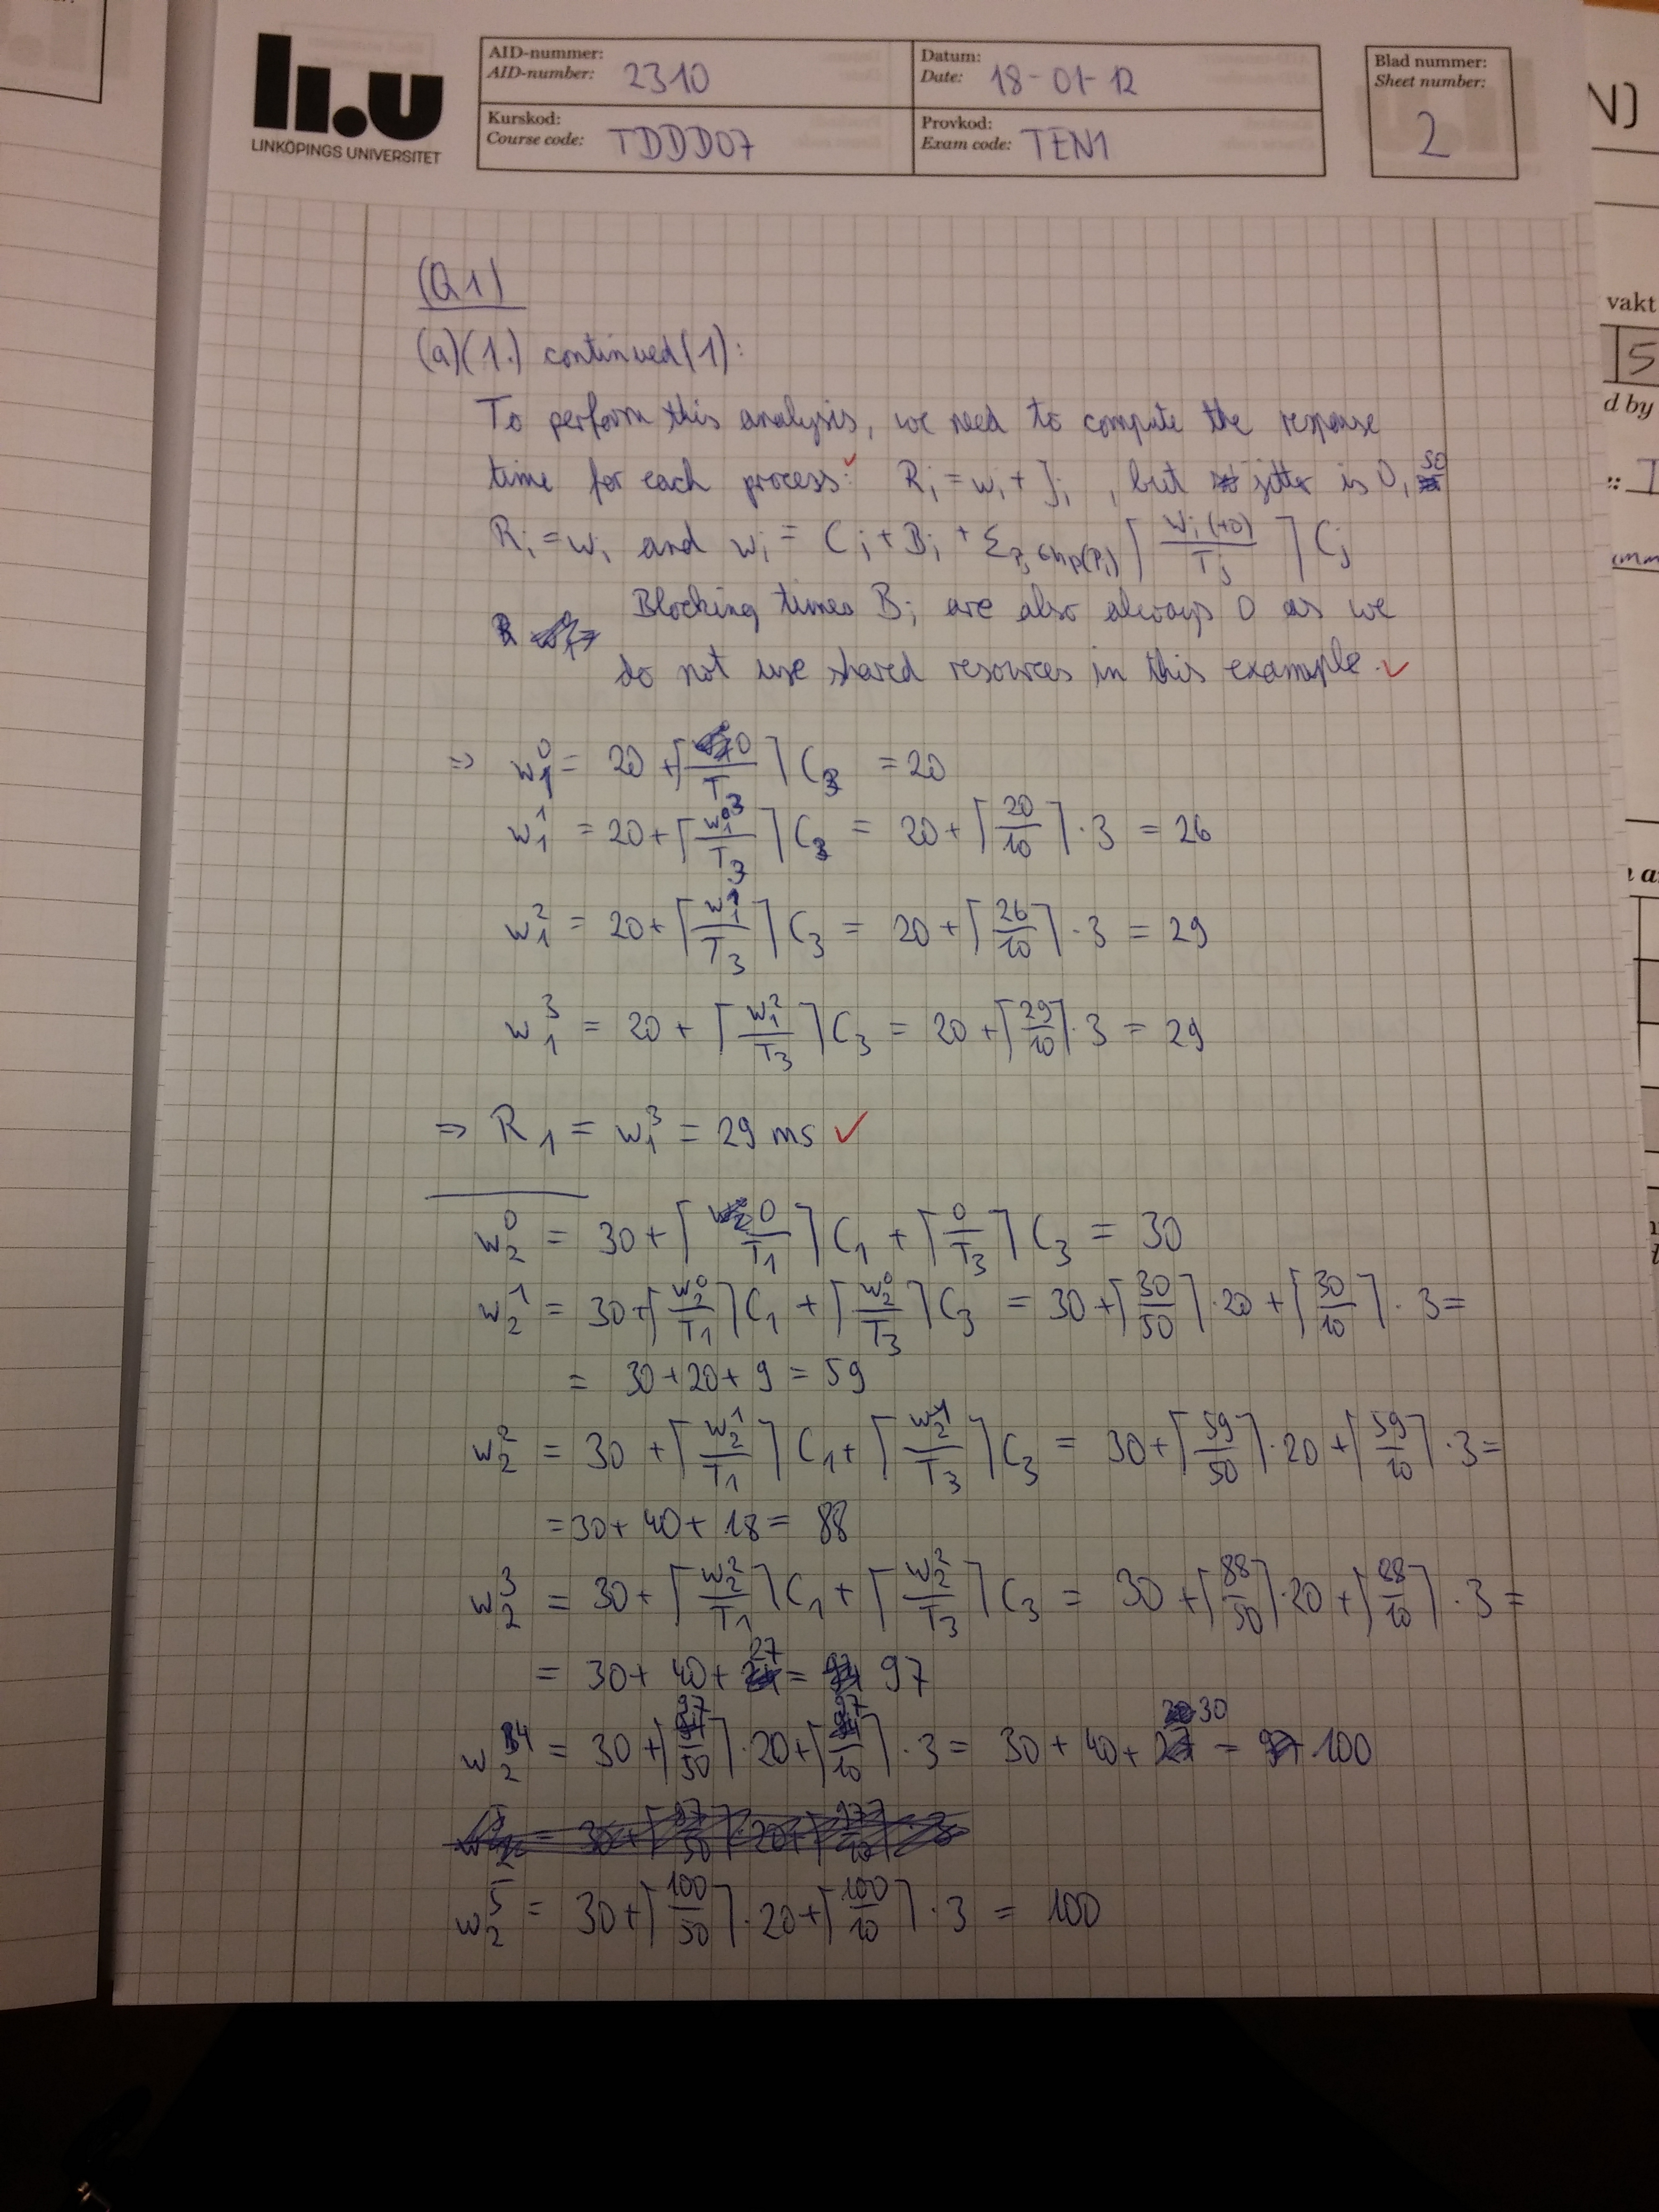 li.u
LINKÖPINGS UNIVERSITET
AID-nummer:
AID-number: 2310
Datum:
Date: 18-01-12
Blad nummer:
Sheet number:
2
Kurskod:
Course code: TDDD07
Provkod:
Exam code: TEN1
(Q1)
(a)(1.) continued(1):
To perform this analysis, we need to compute the response
time for each process: R_i = w_i + J_i , but jitter is 0, so
R_i = w_i and w_i = C_i + B_i + Σ_{P_j ∈ hp(P_i)} ⌈ w_i (+0) / T_j ⌉ C_j
Blocking times B_i are also always 0 as we
do not use shared resources in this example.
⇒ w_1^0 = 20 + ⌈ 0 / T_3 ⌉ C_3 = 20
w_1^1 = 20 + ⌈ w_1^0 / T_3 ⌉ C_3 = 20 + ⌈ 20 / 10 ⌉ · 3 = 26
w_1^2 = 20 + ⌈ w_1^1 / T_3 ⌉ C_3 = 20 + ⌈ 26 / 10 ⌉ · 3 = 29
w_1^3 = 20 + ⌈ w_1^2 / T_3 ⌉ C_3 = 20 + ⌈ 29 / 10 ⌉ · 3 = 29
⇒ R_1 = w_1^3 = 29 ms ✓
w_2^0 = 30 + ⌈ 0 / T_1 ⌉ C_1 + ⌈ 0 / T_3 ⌉ C_3 = 30
w_2^1 = 30 + ⌈ w_2^0 / T_1 ⌉ C_1 + ⌈ w_2^0 / T_3 ⌉ C_3 = 30 + ⌈ 30 / 50 ⌉ · 20 + ⌈ 30 / 10 ⌉ · 3 =
= 30 + 20 + 9 = 59
w_2^2 = 30 + ⌈ w_2^1 / T_1 ⌉ C_1 + ⌈ w_2^1 / T_3 ⌉ C_3 = 30 + ⌈ 59 / 50 ⌉ · 20 + ⌈ 59 / 10 ⌉ · 3 =
= 30 + 40 + 18 = 88
w_2^3 = 30 + ⌈ w_2^2 / T_1 ⌉ C_1 + ⌈ w_2^2 / T_3 ⌉ C_3 = 30 + ⌈ 88 / 50 ⌉ · 20 + ⌈ 88 / 10 ⌉ · 3 =
= 30 + 40 + 27 = 97
w_2^4 = 30 + ⌈ 97 / 50 ⌉ · 20 + ⌈ 97 / 10 ⌉ · 3 = 30 + 40 + 30 = 100
w_2^5 = 30 + ⌈ 100 / 50 ⌉ · 20 + ⌈ 100 / 10 ⌉ · 3 = 100
N)
vakt
5
d by